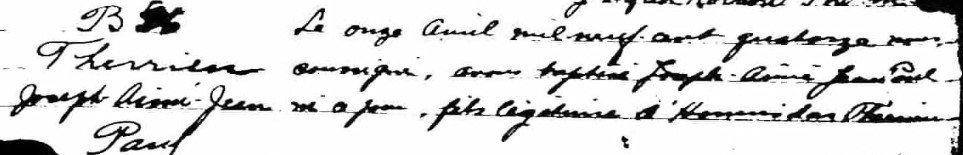 B
Le onze avril mil neuf cent quatorze nous
Therrien
soussigné, avons baptisé Joseph-Aimé Jean Paul
Joseph Aimé-Jean
né ce jour, fils légitime d'Hormisdas Therrien
Paul